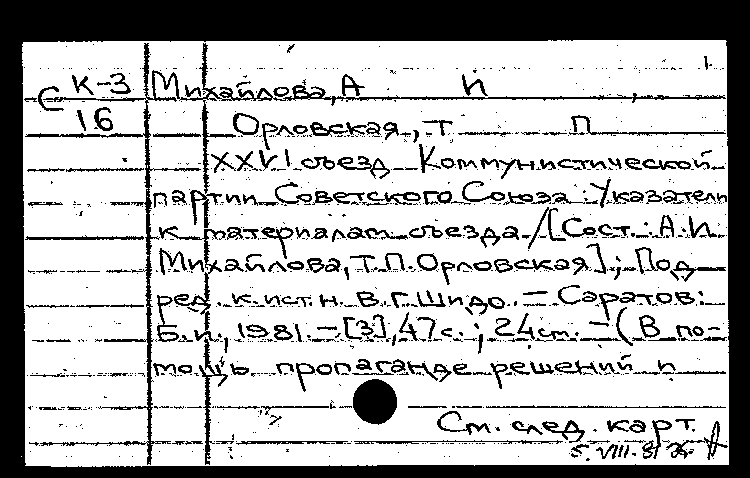 1.
С К-3 Михайлова, А И ,
16 Орловская, Т П
XXVI съезд Коммунистической
партии Советского Союза : Указатели
к материалам съезда / [Сост.: А.И.
Михайлова, Т.П. Орловская]; Под
ред. к.ист.н. В.Г. Шидо. – Саратов:
Б.и., 1981. – [3], 47 с.; 24 см. – (В по-
мощь пропаганде решений п
См. след. карт.
5.VIII.81